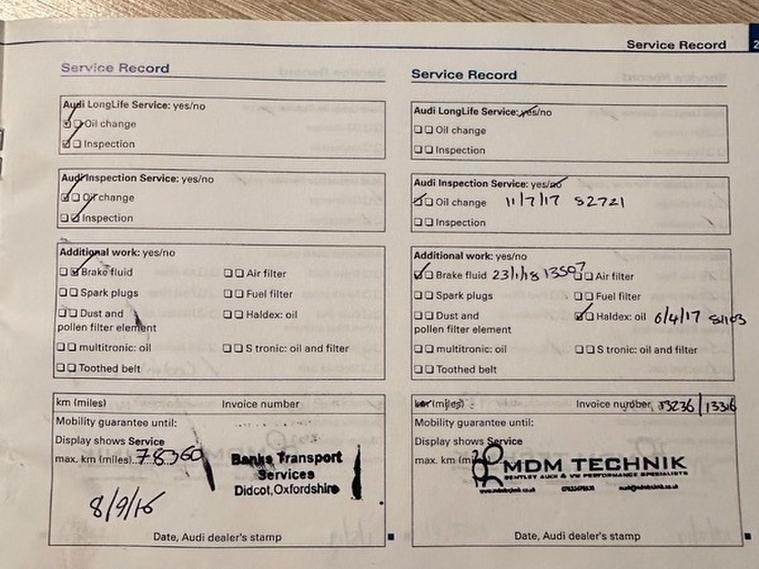 Service Record
2
Service Record
Audi LongLife Service: yes/no
Oil change
Inspection
Audi Inspection Service: yes/no
Oil change
Inspection
Additional work: yes/no
Brake fluid
Air filter
Spark plugs
Fuel filter
Dust and
pollen filter element
Haldex: oil
multitronic: oil
S tronic: oil and filter
Toothed belt
km (miles)
Invoice number
Mobility guarantee until:
Display shows Service
max. km (miles) 78360
Banks Transport
Services
Didcot, Oxfordshire
8/9/16
Date, Audi dealer's stamp
Service Record
Audi LongLife Service: yes/no
Oil change
Inspection
Audi Inspection Service: yes/no
Oil change 11/7/17 82721
Inspection
Additional work: yes/no
Brake fluid 23/1/18
Air filter
Spark plugs
Fuel filter
Dust and
pollen filter element
Haldex: oil 6/4/17
multitronic: oil
S tronic: oil and filter
Toothed belt
km (miles)
Invoice number 13236/13316
Mobility guarantee until:
Display shows Service
max. km
MDM TECHNIK
BENTLEY AUDI & VW PERFORMANCE SPECIALISTS
Date, Audi dealer's stamp